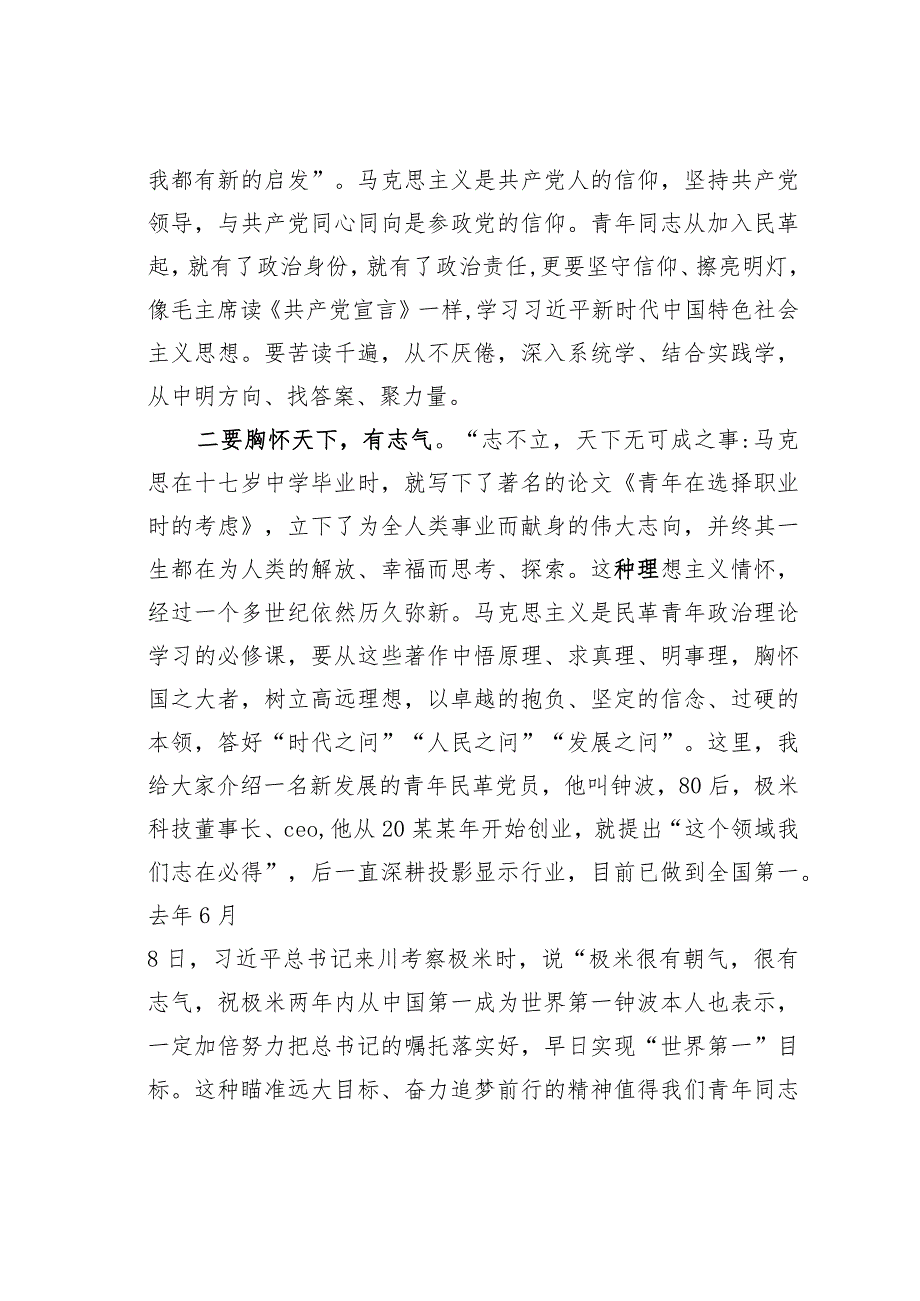 我都有新的启发”。马克思主义是共产党人的信仰，坚持共产党
领导，与共产党同心同向是参政党的信仰。青年同志从加入民革
起，就有了政治身份，就有了政治责任,更要坚守信仰、擦亮明灯，
像毛主席读《共产党宣言》一样,学习习近平新时代中国特色社会
主义思想。要苦读千遍，从不厌倦，深入系统学、结合实践学，
从中明方向、找答案、聚力量。
二要胸怀天下，有志气。“志不立，天下无可成之事:马克
思在十七岁中学毕业时，就写下了著名的论文《青年在选择职业
时的考虑》，立下了为全人类事业而献身的伟大志向，并终其一
生都在为人类的解放、幸福而思考、探索。这种理想主义情怀，
经过一个多世纪依然历久弥新。马克思主义是民革青年政治理论
学习的必修课，要从这些著作中悟原理、求真理、明事理，胸怀
国之大者，树立高远理想，以卓越的抱负、坚定的信念、过硬的
本领，答好“时代之问”“人民之问”“发展之问”。这里，我
给大家介绍一名新发展的青年民革党员，他叫钟波，80后，极米
科技董事长、ceo,他从20某某年开始创业，就提出“这个领域我
们志在必得”，后一直深耕投影显示行业，目前已做到全国第一。
去年6月
8日，习近平总书记来川考察极米时，说“极米很有朝气，很有
志气，祝极米两年内从中国第一成为世界第一钟波本人也表示，
一定加倍努力把总书记的嘱托落实好，早日实现“世界第一”目
标。这种瞄准远大目标、奋力追梦前行的精神值得我们青年同志